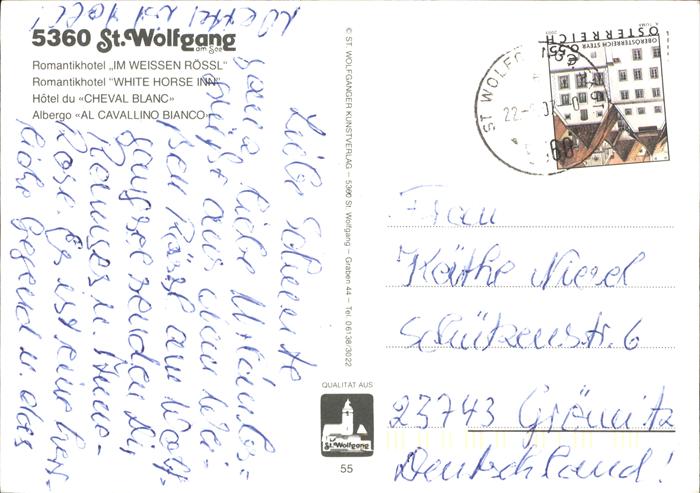 5360 St. Wolfgang
am See
Romantikhotel „IM WEISSEN RÖSSL"
Romantikhotel "WHITE HORSE INN"
Hôtel du «CHEVAL BLANC»
Albergo «AL CAVALLINO BIANCO»
© ST. WOLFGANGER KUNSTVERLAG – 5360 St. Wolfgang – Graben 44 – Tel. 06138-3022
QUALITÄT AUS
St. Wolfgang
55
ÖSTERREICH
OBERÖSTERREICH STEYR
0,55
ST WOLFG
22
5360
Liebe
ganz liebe Urlaubs-
grüße aus dem We-
ßen Rössl am Wolf-
gangsee senden Dir
u. Anne-
Rose. Es ist eine herr-
liche Gegend u. das
Wetter ist toll!
Frau
Käthe Niesel
Schützenstr. 6
23743 Grömitz
Deutschland!